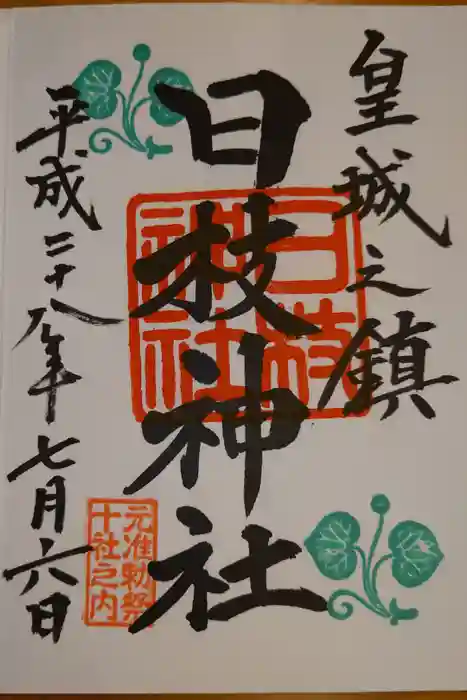 皇城之鎮
日枝神社
日枝
神社
平成二十八年七月六日
元准勅祭
十社之内